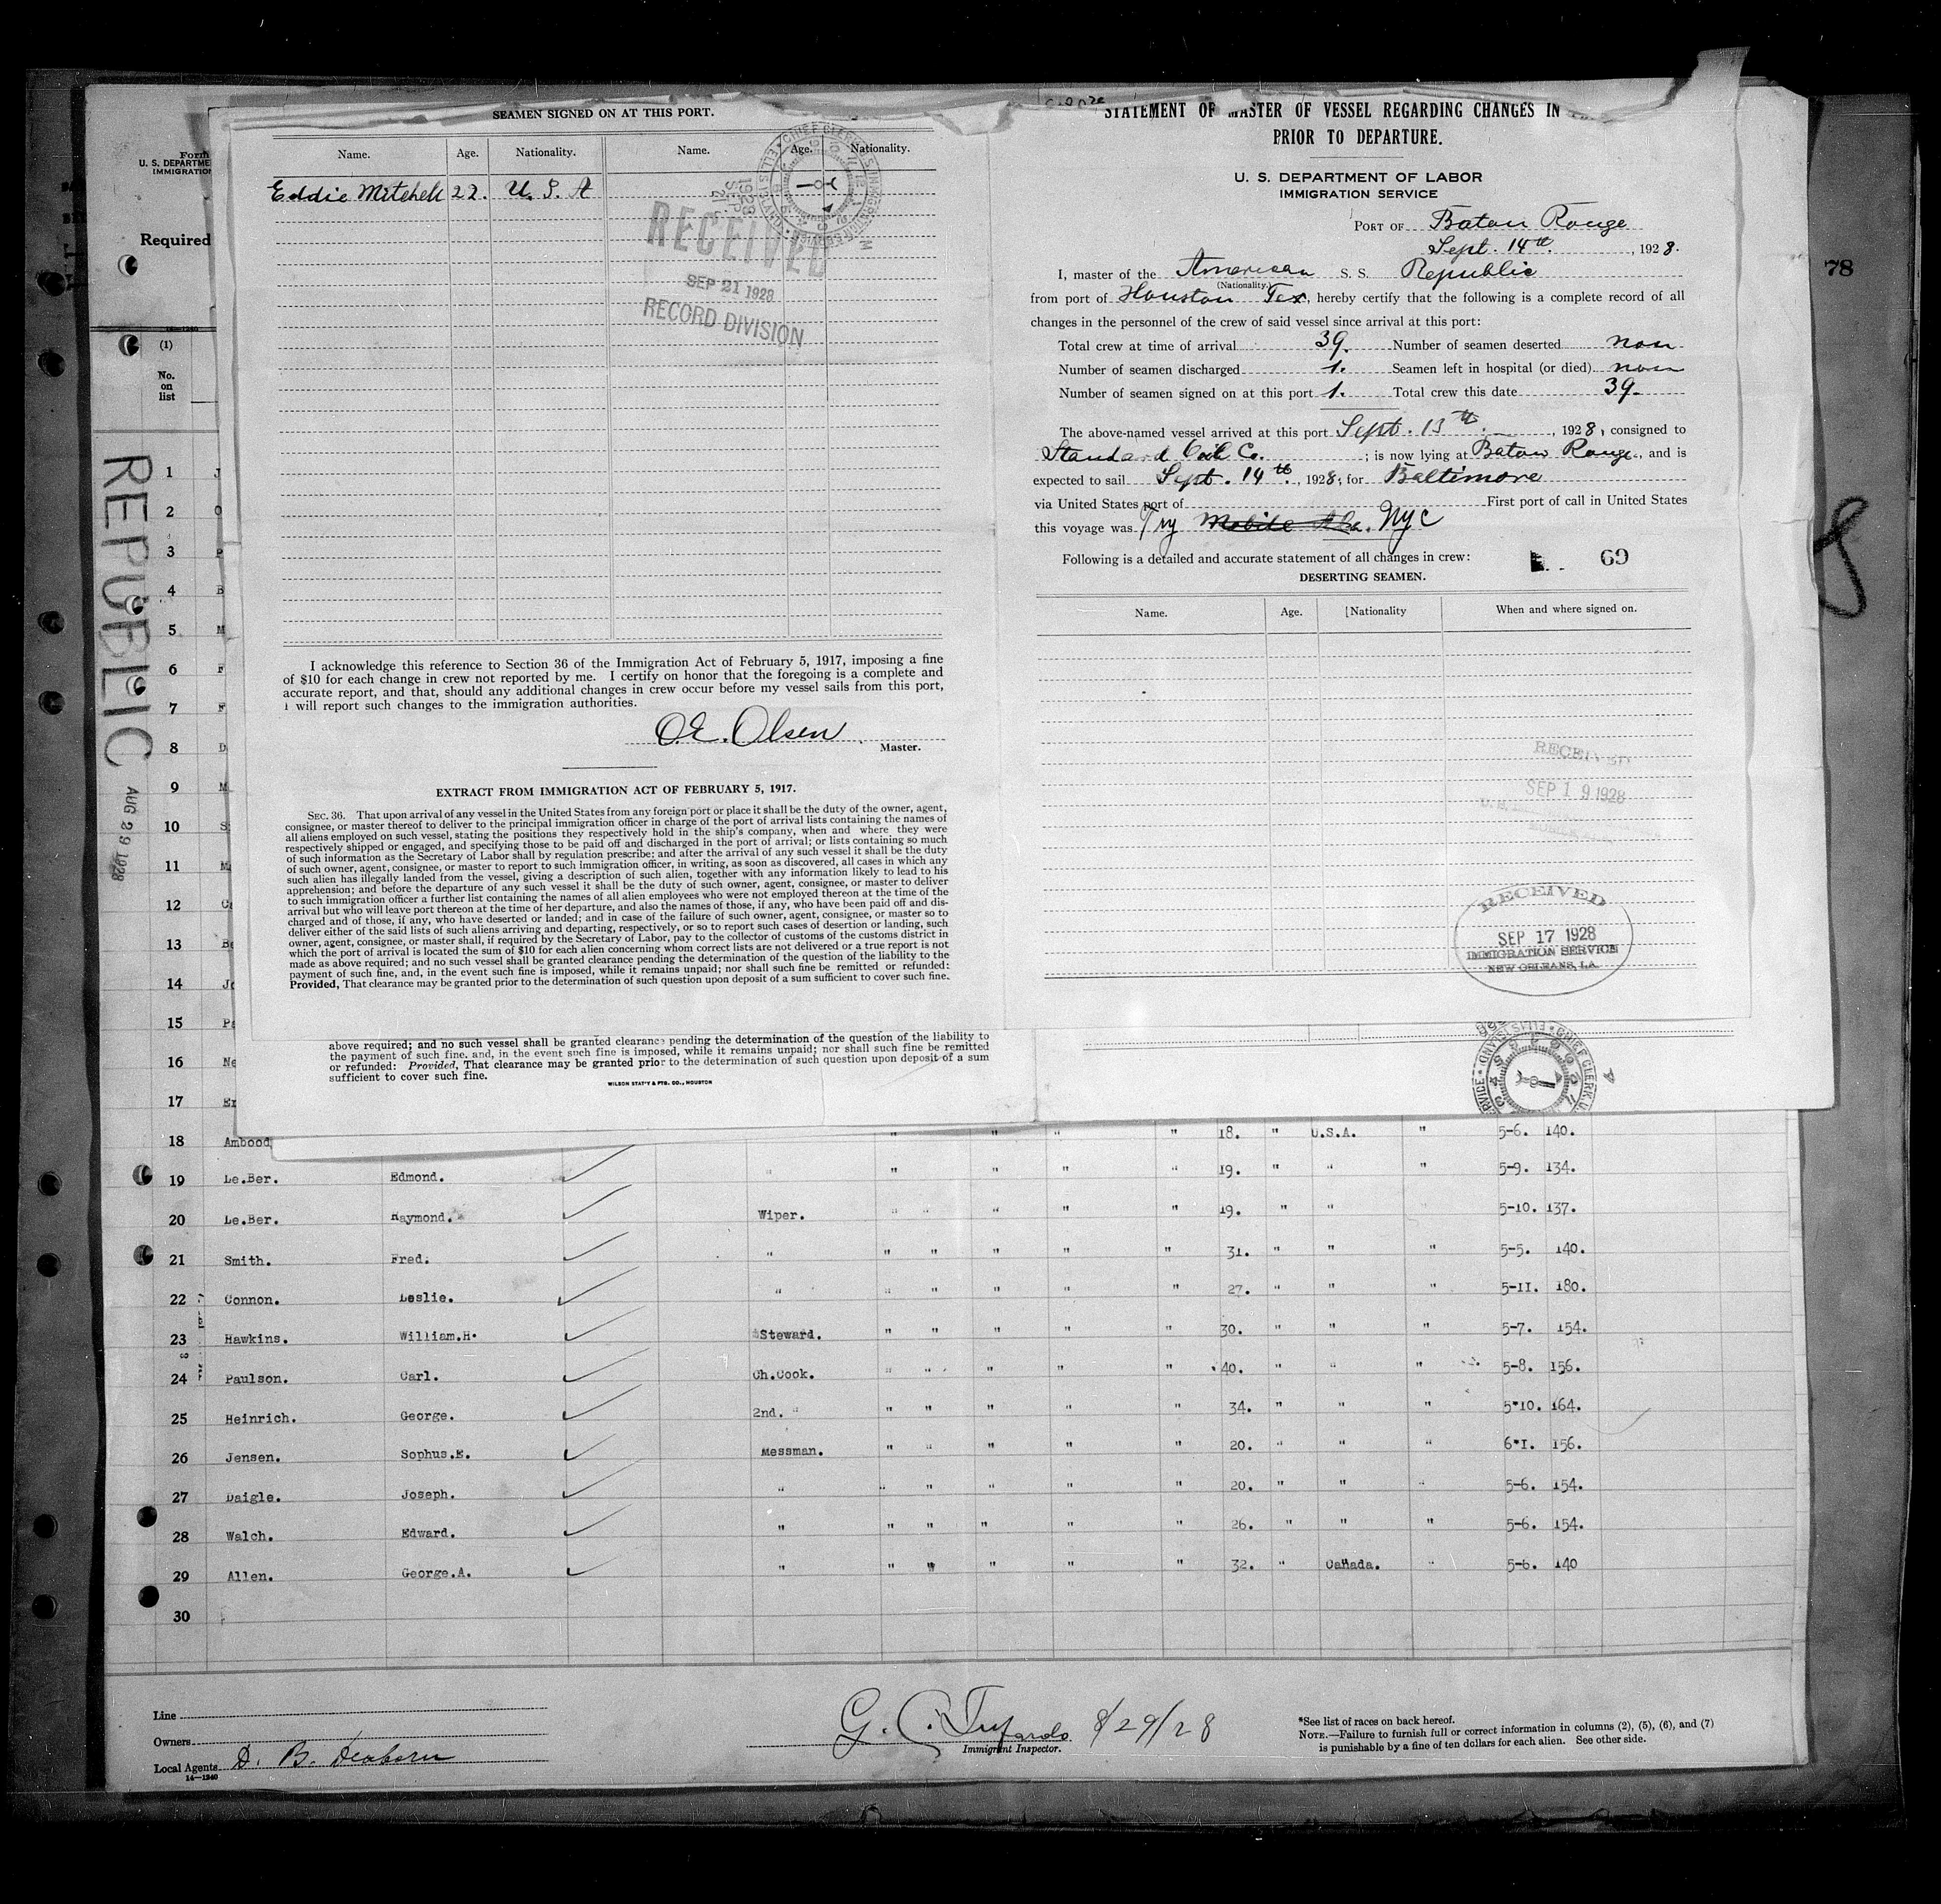 SEAMEN SIGNED ON AT THIS PORT.
Name. Age. Nationality. Name. Age. Nationality.
Eddie Mitchell 22. U. S. A
CHIEF CLERK
ELLIS ISLAND
1928 SEP 21
RECEIVED
SEP 21 1928
RECORD DIVISION
I acknowledge this reference to Section 36 of the Immigration Act of February 5, 1917, imposing a fine
of $10 for each change in crew not reported by me. I certify on honor that the foregoing is a complete and
accurate report, and that, should any additional changes in crew occur before my vessel sails from this port,
I will report such changes to the immigration authorities.
O.E. Olsen
Master.
EXTRACT FROM IMMIGRATION ACT OF FEBRUARY 5, 1917.
SEC. 36. That upon arrival of any vessel in the United States from any foreign port or place it shall be the duty of the owner, agent,
consignee, or master thereof to deliver to the principal immigration officer in charge of the port of arrival lists containing the names of
all aliens employed on such vessel, stating the positions they respectively hold in the ship's company, when and where they were
respectively shipped or engaged, and specifying those to be paid off and discharged in the port of arrival; or lists containing so much
of such information as the Secretary of Labor shall by regulation prescribe; and after the arrival of any such vessel it shall be the duty
of such owner, agent, consignee, or master to report to such immigration officer, in writing, as soon as discovered, all cases in which any
such alien has illegally landed from the vessel, giving a description of such alien, together with any information likely to lead to his
apprehension; and before the departure of any such vessel it shall be the duty of such owner, agent, consignee, or master to deliver
to such immigration officer a further list containing the names of all alien employees who were not employed thereon at the time of the
arrival but who will leave port thereon at the time of her departure, and also the names of those, if any, who have been paid off and dis-
charged and of those, if any, who have deserted or landed; and in case of the failure of such owner, agent, consignee, or master so to
deliver either of the said lists of such aliens arriving and departing, respectively, or so to report such cases of desertion or landing, such
owner, agent, consignee, or master shall, if required by the Secretary of Labor, pay to the collector of customs of the customs district in
which the port of arrival is located the sum of $10 for each alien concerning whom correct lists are not delivered or a true report is not
made as above required; and no such vessel shall be granted clearance pending the determination of the question of the liability to the
payment of such fine, and, in the event such fine is imposed, while it remains unpaid; nor shall such fine be remitted or refunded:
Provided, That clearance may be granted prior to the determination of such question upon deposit of a sum sufficient to cover such fine.
above required; and no such vessel shall be granted clearance pending the determination of the question of the liability to
the payment of such fine. and, in the event such fine is imposed, while it remains unpaid; nor shall such fine be remitted
or refunded: Provided, That clearance may be granted prior to the determination of such question upon deposit of a sum
sufficient to cover such fine.
WILSON STAT'Y & PTG. CO., HOUSTON
STATEMENT OF MASTER OF VESSEL REGARDING CHANGES IN
PRIOR TO DEPARTURE.
U. S. DEPARTMENT OF LABOR
IMMIGRATION SERVICE
PORT OF Baton Rouge
Sept. 14th, 1928.
I, master of the American S. S. Republic
(Nationality.)
from port of Houston Tex, hereby certify that the following is a complete record of all
changes in the personnel of the crew of said vessel since arrival at this port:
Total crew at time of arrival 39. Number of seamen deserted non
Number of seamen discharged 1. Seamen left in hospital (or died) non
Number of seamen signed on at this port 1. Total crew this date 39.
The above-named vessel arrived at this port Sept. 13th, 1928, consigned to
Standard Oil Co. ; is now lying at Baton Rouge, and is
expected to sail Sept. 14th, 1928, for Baltimore
via United States port of First port of call in United States
this voyage was Mobile Ala. Nyc
Following is a detailed and accurate statement of all changes in crew:
69
DESERTING SEAMEN.
Name. Age. Nationality When and where signed on.
RECEIVED
SEP 19 1928
RECEIVED
SEP 17 1928
IMMIGRATION SERVICE
NEW ORLEANS, LA.
CHIEF CLERK
ELLIS ISLAND
78
Form
U. S. DEPARTME
IMMIGRATIO
Required
14-1240
(1)
No.
on
list
REPUBLIC
AUG 29 1928
1 J
2 O
3 P
4 B
5 M
6 F
7 F
8 D
9 M
10 S
11 Ma
12 Ca
13 Be
14 Jo
15 Pa
16 Ne
17 Er
18 Ambood " " " " 18. " U.S.A. " 5-6. 140.
19 Le.Ber. Edmond. " " " " " 19. " " " 5-9. 134.
20 Le.Ber. Raymond. Wiper. " " " " " 19. " " 5-10. 137.
21 Smith. Fred. " " " " " " 31. " " " 5-5. 140.
22 Connon. Leslie. " " " " " " 27. " " " 5-11. 180.
23 Hawkins. William.H. Steward. " " " " " 30. " " " 5-7. 154.
24 Paulson. Carl. Ch.Cook. " " " " " 40. " " " 5-8. 156.
25 Heinrich. George. 2nd. " " " " " " 34. " " " 5*10. 164.
26 Jensen. Sophus.E. Messman. " " " " " 20. " " " 6*1. 156.
27 Daigle. Joseph. " " " " " " 20. " " " 5-6. 154.
28 Walch. Edward. " " " " " " 26. " " " 5-6. 154.
29 Allen. George.A. " " " " " " 32. " Canada. " 5-6. 140
30
Line
Owners
Local Agents D. B. Dearborn
14-1240
8/29/28
Immigrant Inspector.
*See list of races on back hereof.
NOTE.—Failure to furnish full or correct information in columns (2), (5), (6), and (7)
is punishable by a fine of ten dollars for each alien. See other side.